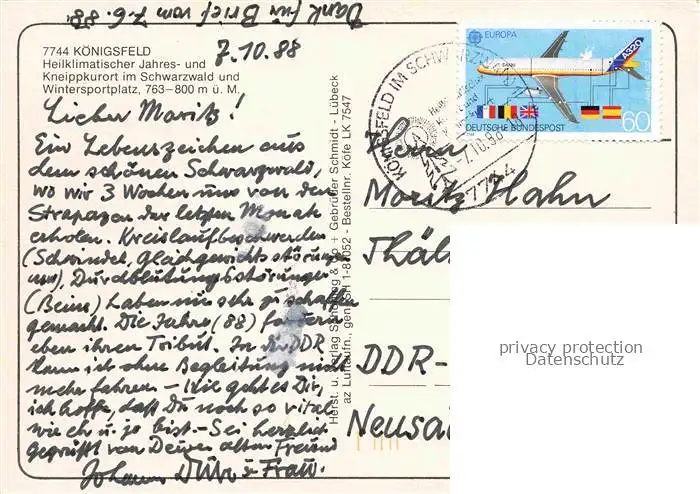 Dank für Brief vom 7.6. 88.
7744 KÖNIGSFELD
Heilklimatischer Jahres- und
Kneippkurort im Schwarzwald und
Wintersportplatz, 763–800 m ü. M.
7.10.88
Lieber Moritz!
Ein Lebenszeichen aus
dem schönen Schwarzwald,
wo wir 3 Wochen uns von den
Strapazen der letzten Monate
erholen. Kreislaufbeschwerden
(Schwindel, Gleichgewichtsstörun-
gen), Durchblutungsstörungen
(Beine) haben mir sehr zu schaffen
gemacht. Die Jahre (88) fordern
eben ihren Tribut. In die DDR
kann ich ohne Begleitung nicht
mehr fahren – Wie geht es Dir,
ich hoffe, daß Du noch so vital
wie eh u. je bist. – Sei herzlich
gegrüßt von Deinem alten Freund
Johannes u. Frau.
Herst. u. Verlag Schöning & Co + Gebrüder Schmidt - Lübeck
az Luftaufn., gen. SH 1-87052 - Bestellnr. Köfe LK 7547
EUROPA
A320
DEUTSCHE BUNDESPOST
60
KÖNIGSFELD IM SCHWARZWALD
-7.10.88
7744
Herrn
Moritz Hahn
DDR-
privacy protection
Datenschutz